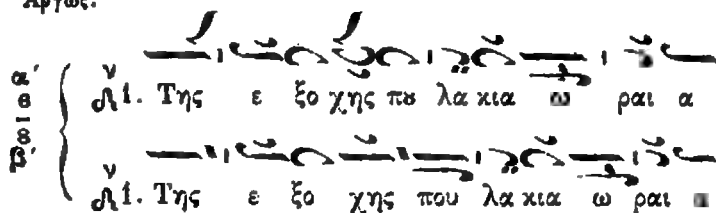 Ἀργῶς.
α′ 6/8 β′
ν 1. Της ε ξο χης πȣ λα κια ω ραι α
ν 1. Της ε ξο χης που λα κια ω ραι